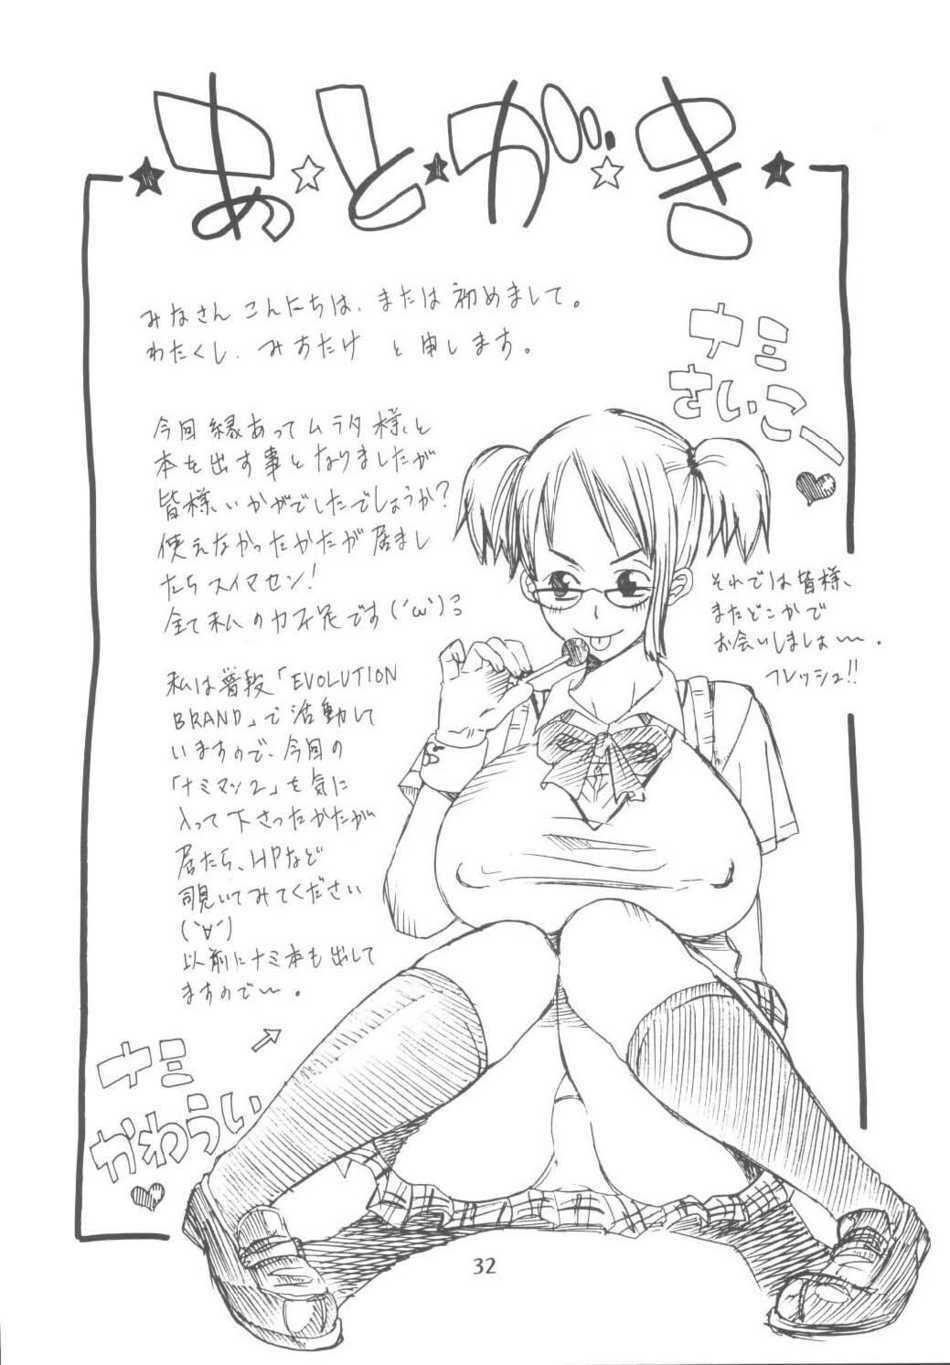 あとがき
みなさん こんにちは、または初めまして。
わたくし、みすたけ と申します。
今回縁あってムラタ様と
本を出す事となりましたが
皆様いかがでしたでしょうか?
使えなかったかたが居まし
たらスイマセン!
全て私の力不足です(´ω`)
私は普段「EVOLUTION
BRAND」で活動して
いますので、今回の
「ナミマン2」を気に
入って下さったかたが
居たら、HPなど
覗いてみてください
(´∀`)
以前にナミ本も出して
ますので〜。
ナミ
さいこー
それでは皆様、
またどこかで
お会いしましょ〜。
フレッシュ!!
ナミ
かわうい
32